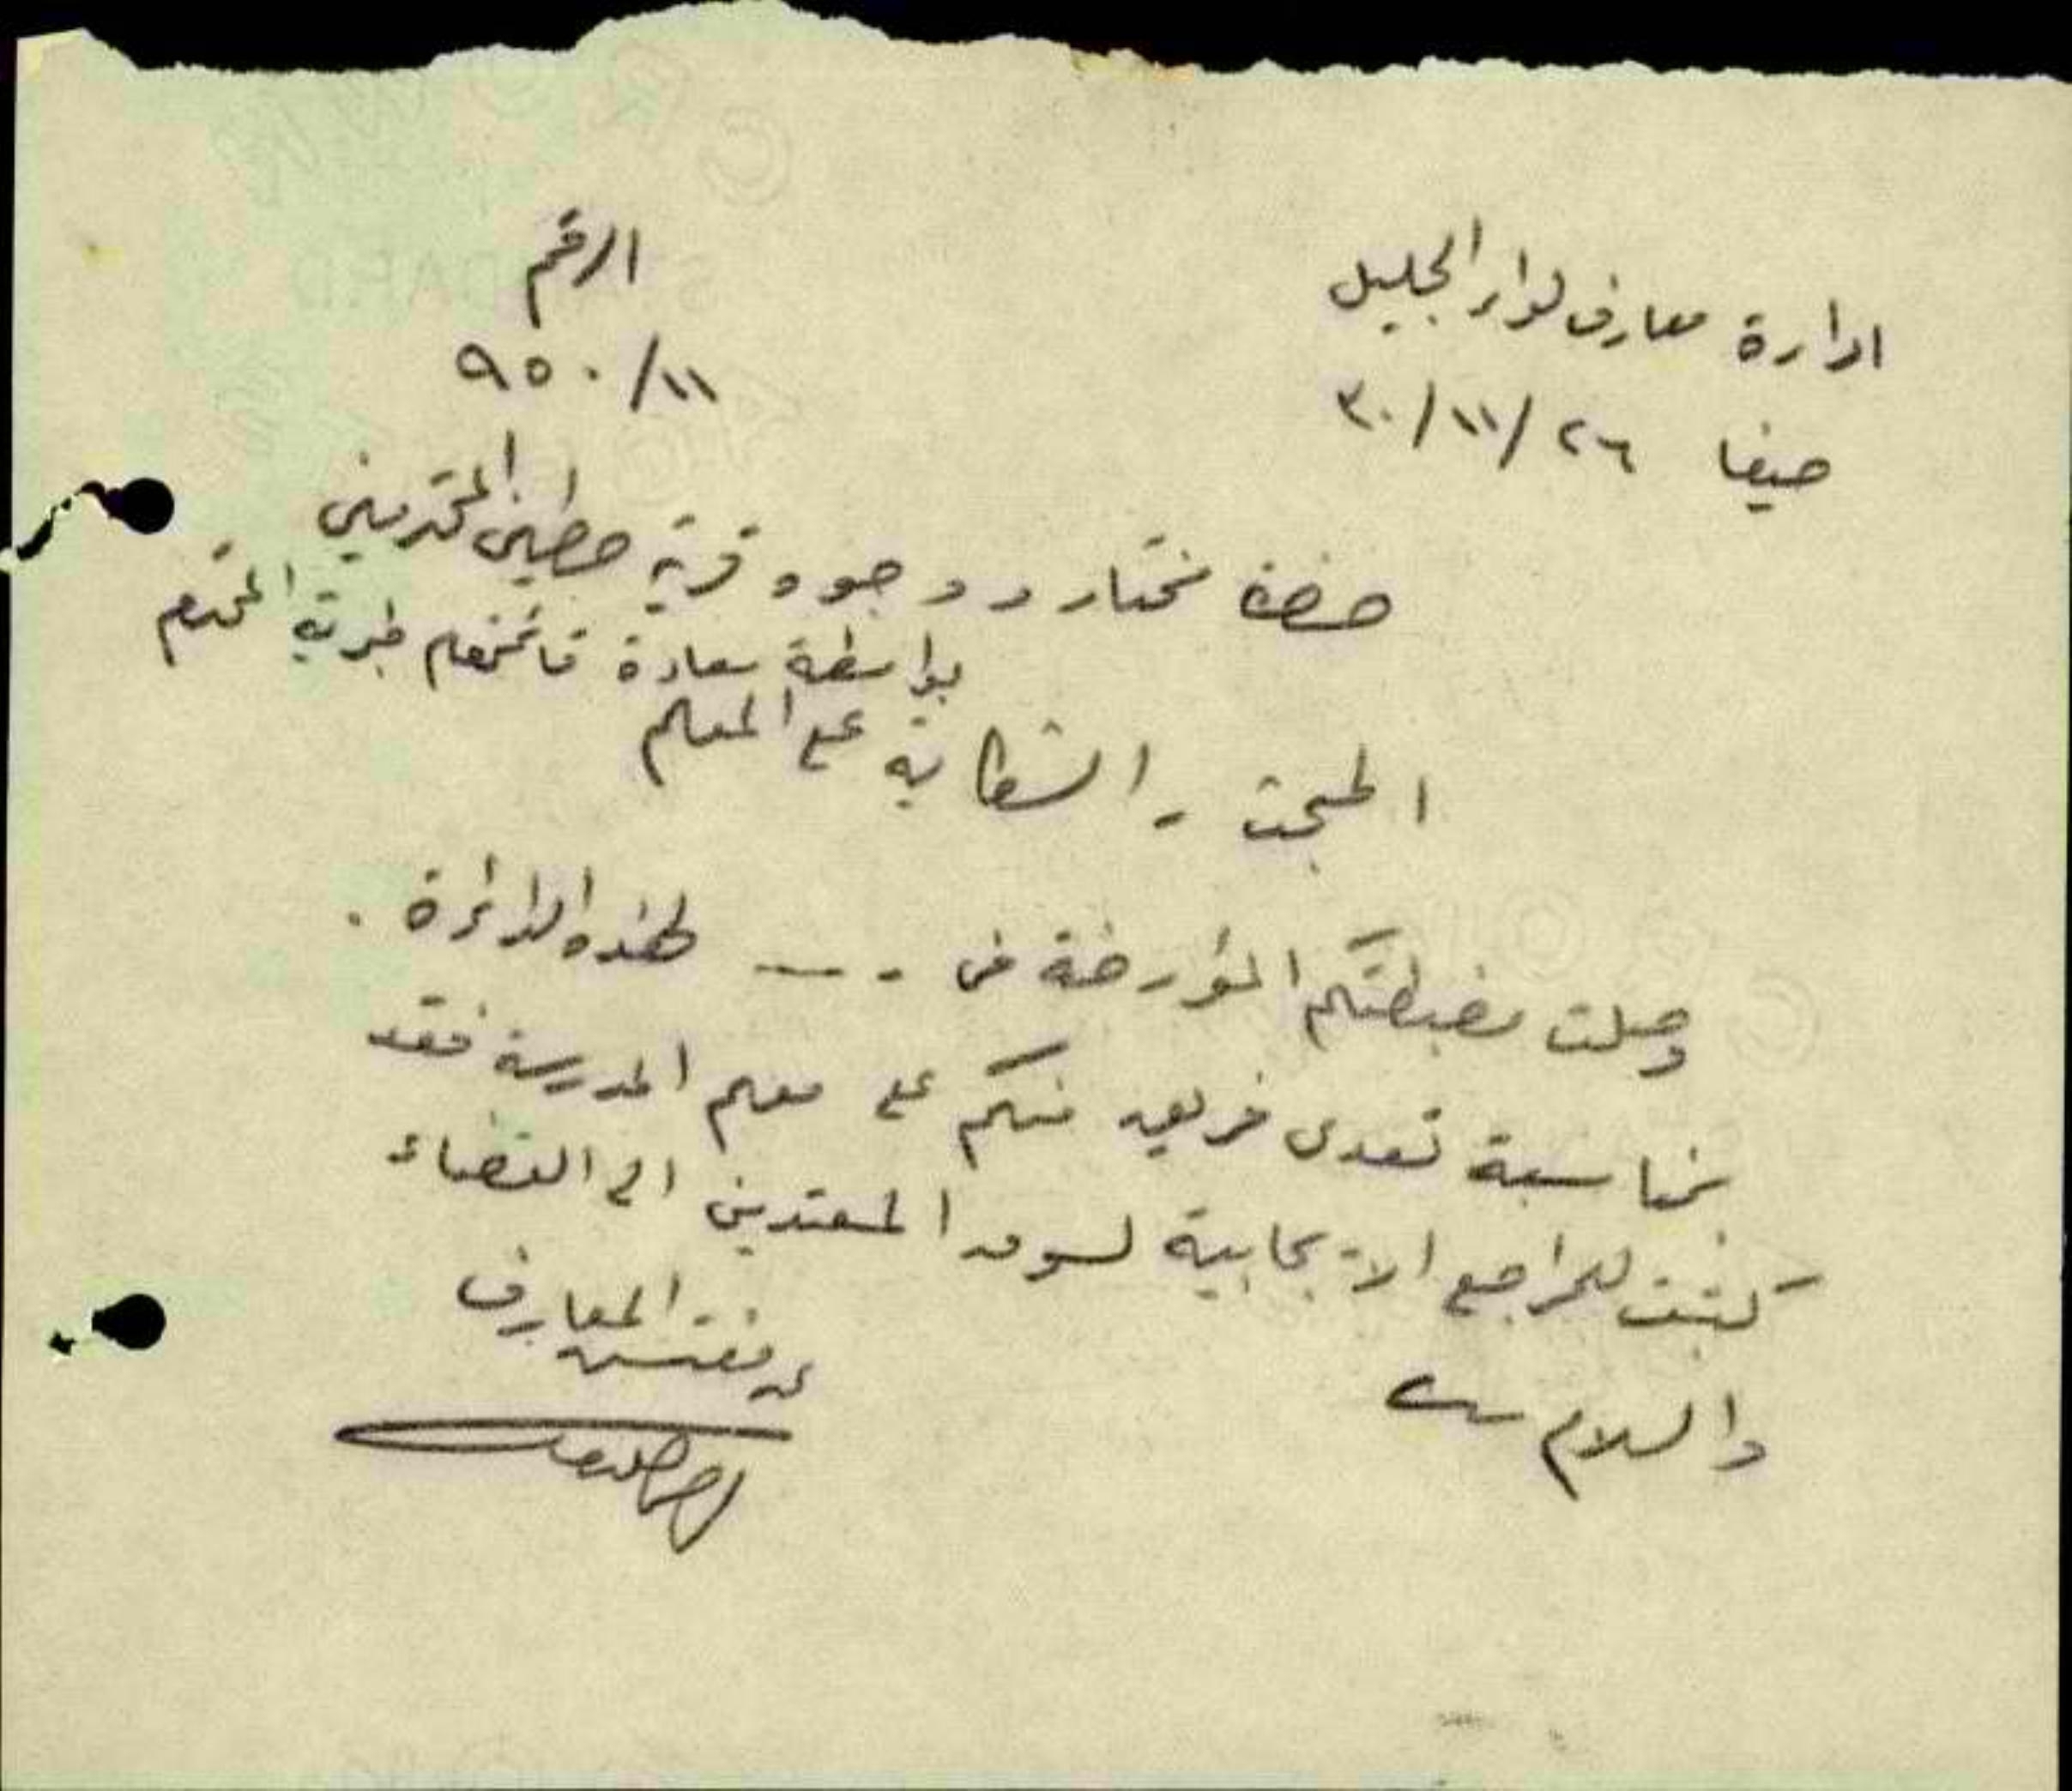 ادارة معارف لواء الجليل
حيفا ٢٦/١١/٣٠
الرقم
١١/٩٥٠
حضرة مختار ووجوه قرية حطين المحترمين
بواسطة سعادة قائمقام طبرية المحترم
المبحث - الشكاية على المعلم
وصلت مضبطتكم المؤرخة في - --- لهذه الدائرة .
بمناسبة تعدى فريق منكم على معلم المدرسة فقد
كتبت للمراجع الايجابية لسوق المعتدين الى القضاء
والسلام
عن مفتش المعارف